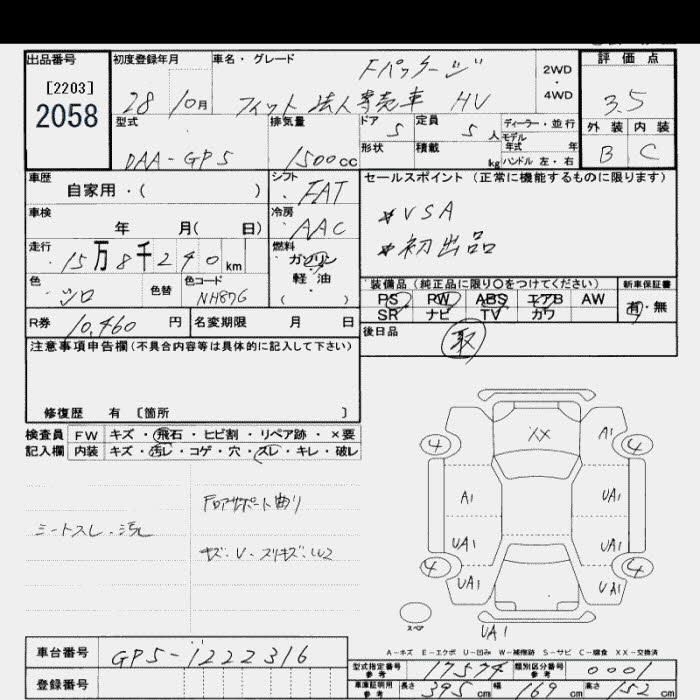 出品番号
[2203]
2058
初度登録年月
28 10月
車名・グレード
Fパッケージ
フィット 法人専売車 HV
2WD
・
4WD
評価点
3.5
外装 内装
B C
型式
DAA-GP5
排気量
1500cc
ドア
5
定員
5人
形状
積載
kg
ディーラー・並行
モデル
年式 年
ハンドル 左・右
車歴
自家用・( )
シフト
FAT
車検
年 月( 日)
冷房
AAC
走行
15万8千240km
燃料
ガソリン
軽・油
( )
色
シロ
色替
色コード
NH876
R券
10,460円
名変期限 月 日
セールスポイント(正常に機能するものに限ります)
*VSA
*初出品
装備品(純正品に限り○をつけてください)
PS PW ABS エアB AW
SR ナビ TV カワ
新車保証書
有・無
後日品
取
注意事項申告欄(不具合内容等は具体的に記入して下さい)
修復歴 有 [箇所 ]
検査員 FW キズ・飛石・ヒビ割・リペア跡・×要
記入欄 内装 キズ・汚レ・コゲ・穴・スレ・キレ・破レ
シートスレ・汚レ
Fロアサポート曲リ
キズ・V・スリキズ・W2
XX
4
A1
4
A1
UA1
UA1
UA1
4
4
UA1
UA1
スペア
UA1
A-キズ E-エクボ U-凹み W-補修跡 S-サビ C-腐食 XX-交換済
車台番号
GP5-1222316
登録番号
型式指定番号
参考
17574
類別区分番号
参考
0001
車庫証明用
参考
長さ 395cm 幅 169cm 高さ 152cm